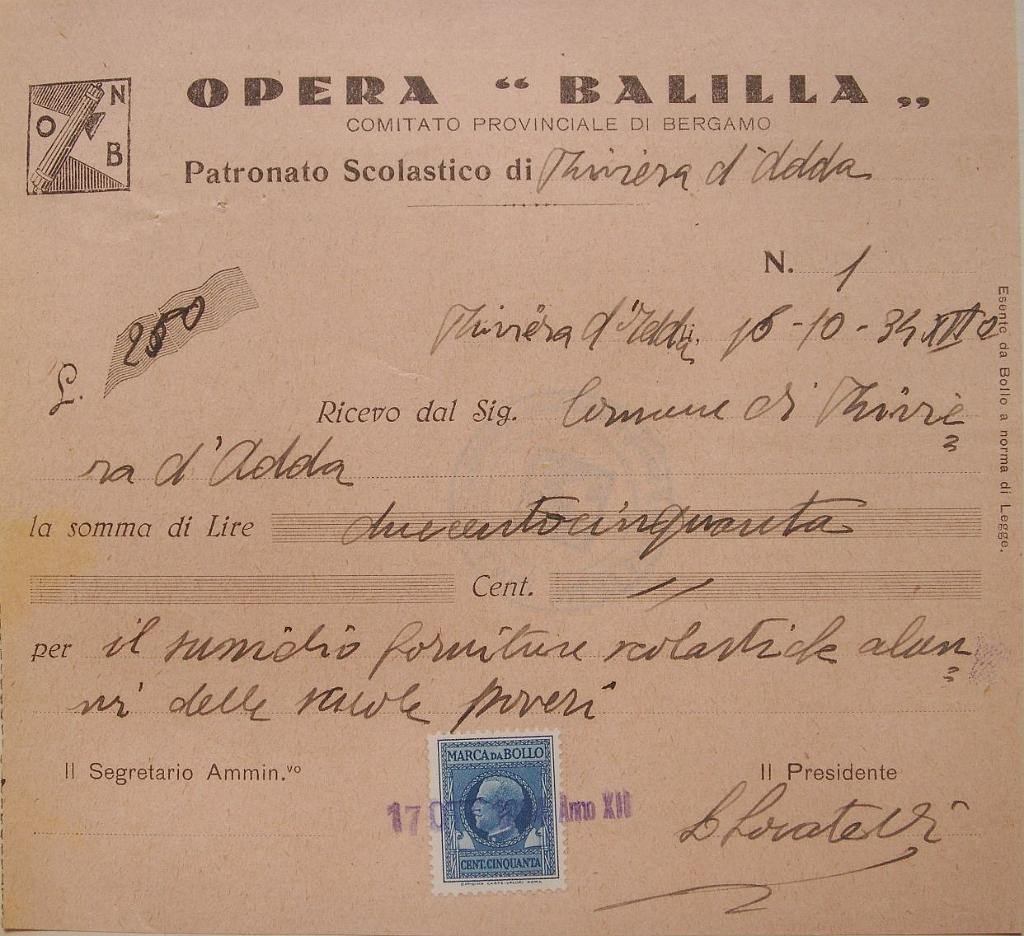 O N B
OPERA “BALILLA„
COMITATO PROVINCIALE DI BERGAMO
Patronato Scolastico di Riviera d'Adda
N. 1
£. 250
Riviera d'Adda, 16-10-34 XII°
Ricevo dal Sig. Comune di Rivie
ra d'Adda
la somma di Lire duecentocinquanta
Cent. //
per il sussidio forniture scolastiche alun
ni delle scuole poveri
Il Segretario Ammin.vo
Il Presidente
MARCA DA BOLLO
17 Anno XII
CENT. CINQUANTA
Esente da Bollo a norma di Legge.